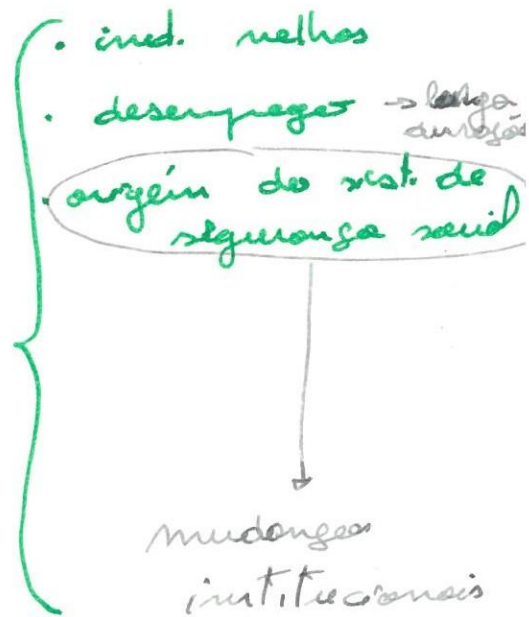 . ind. velhos
. desemprego → longa
duração
. origem do sist. de
segurança social
mudanças
institucionais